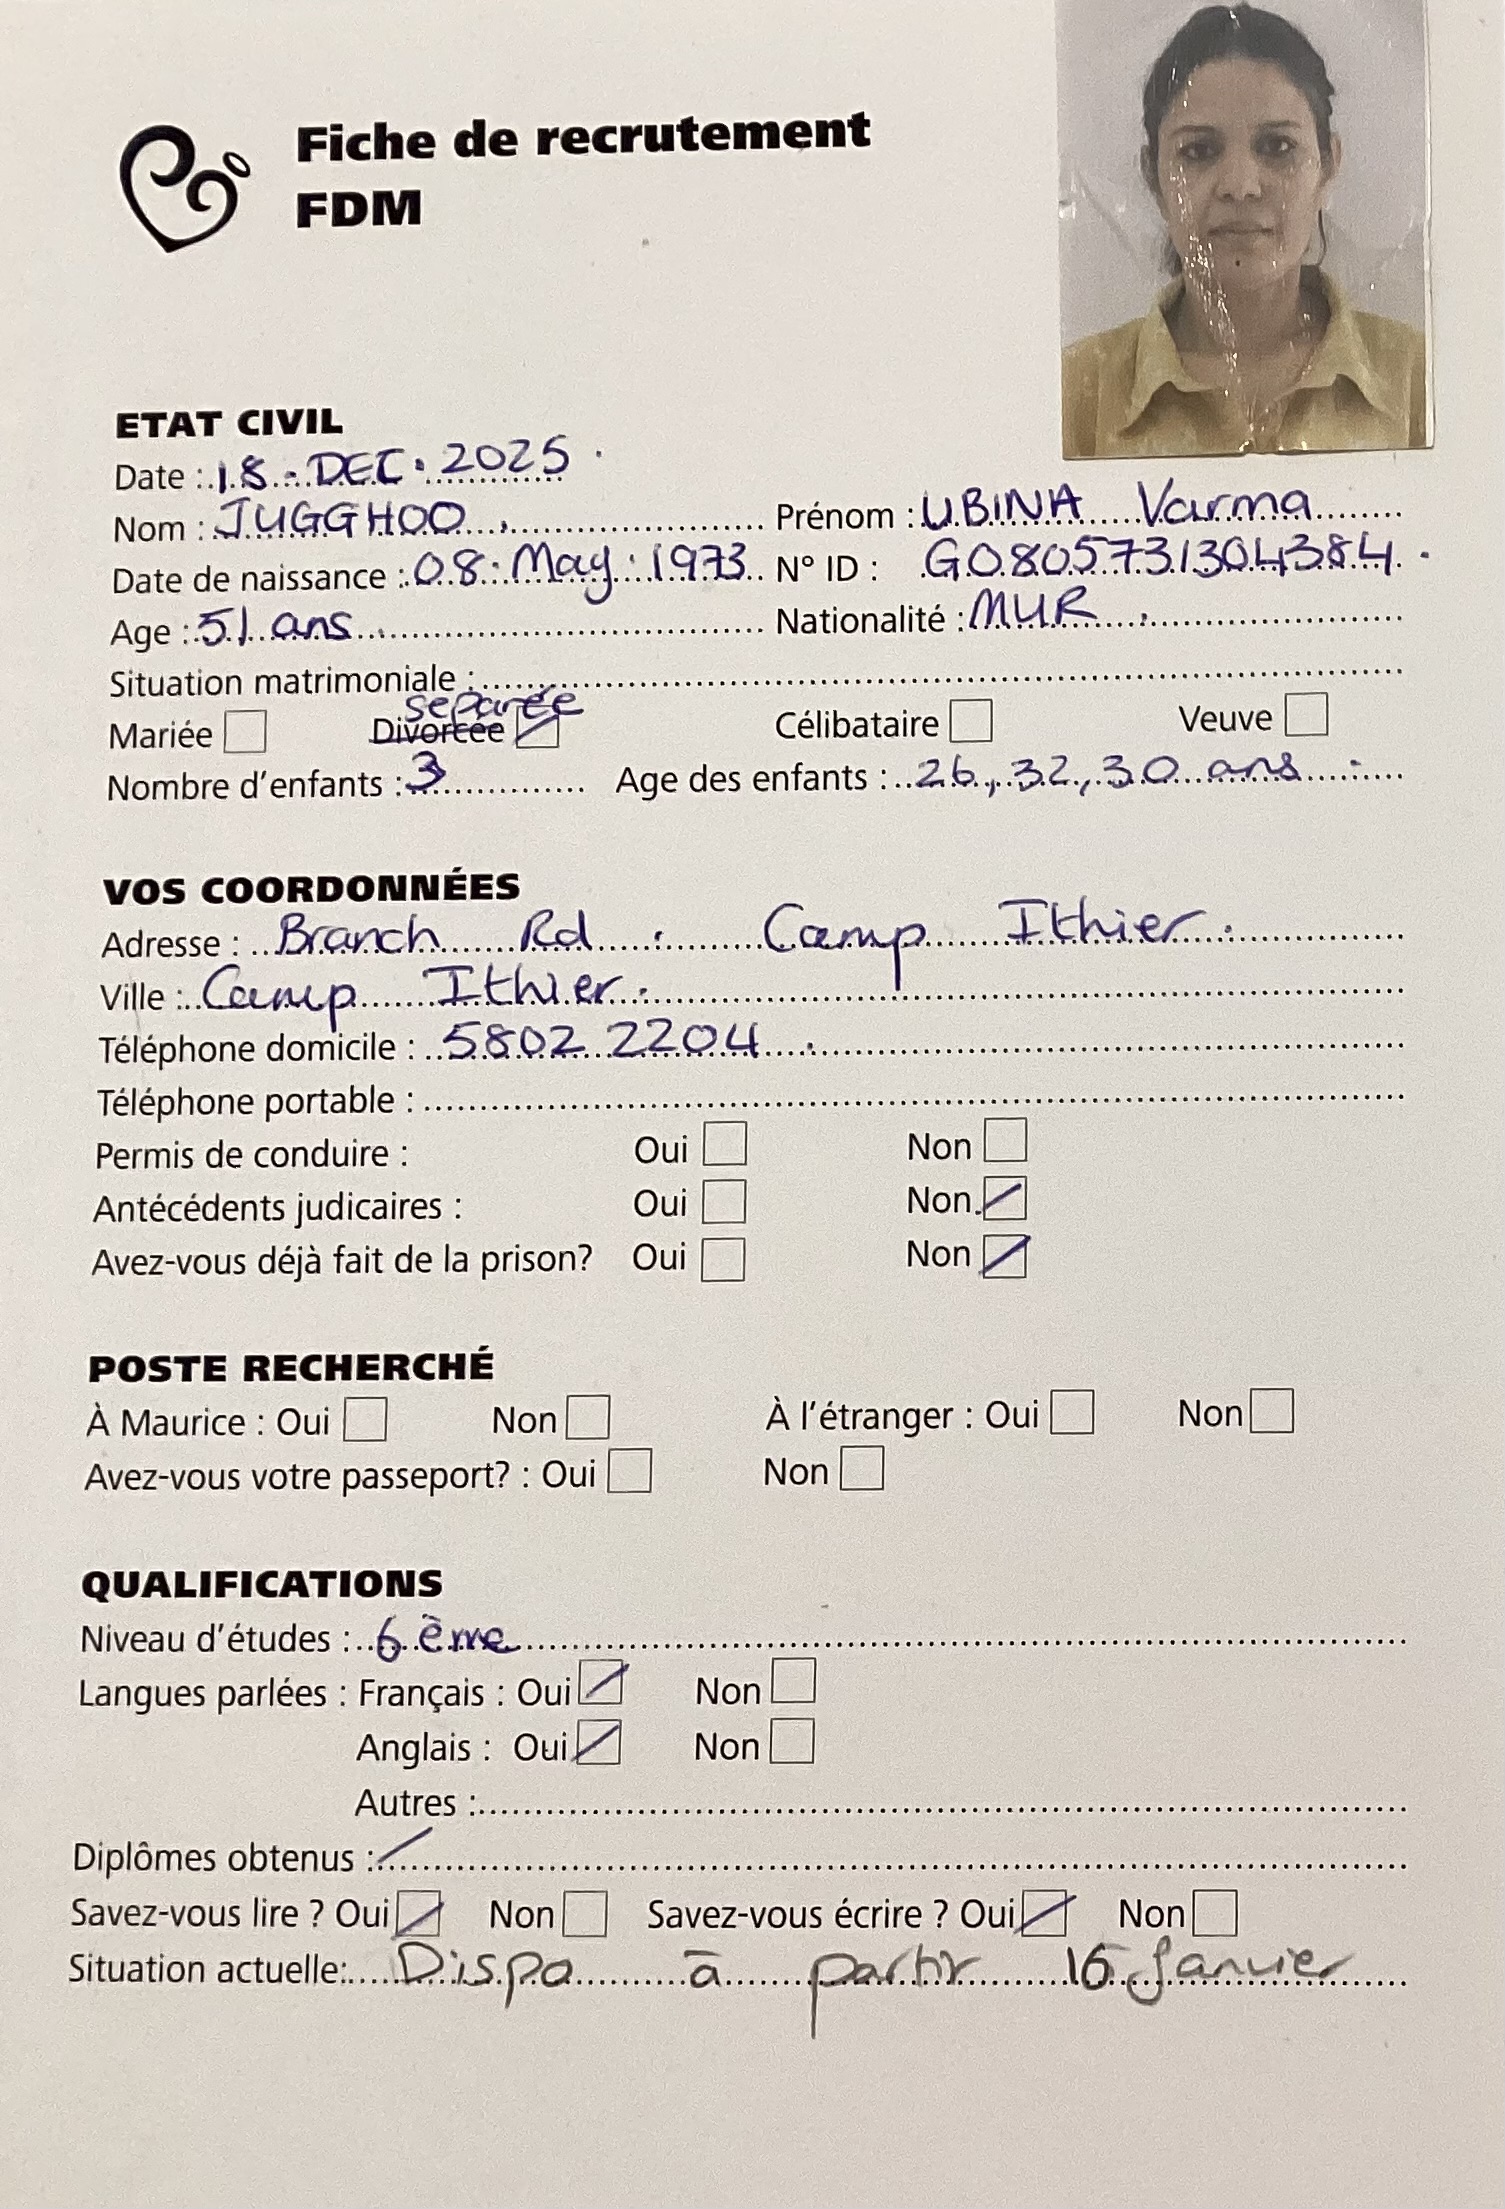 Fiche de recrutement
FDM
ETAT CIVIL
Date : 18 - DEC. 2025
Nom : JUGGHOO Prénom : UBINA Varma
Date de naissance : 08. May. 1973 N° ID : G0805731304384
Age : 51 ans Nationalité : MUR
Situation matrimoniale :
separée
Mariée Divorcée Célibataire Veuve
Nombre d'enfants : 3 Age des enfants : 26, 32, 30 ans
VOS COORDONNÉES
Adresse : Branch Rd. Camp Ithier.
Ville : Camp Ithier.
Téléphone domicile : 5802 2204
Téléphone portable :
Permis de conduire : Oui Non
Antécédents judicaires : Oui Non
Avez-vous déjà fait de la prison? Oui Non
POSTE RECHERCHÉ
À Maurice : Oui Non À l'étranger : Oui Non
Avez-vous votre passeport? : Oui Non
QUALIFICATIONS
Niveau d'études : 6 ème
Langues parlées : Français : Oui Non
Anglais : Oui Non
Autres :
Diplômes obtenus : /
Savez-vous lire ? Oui Non Savez-vous écrire ? Oui Non
Situation actuelle: Dispo à partir 16 Janvier